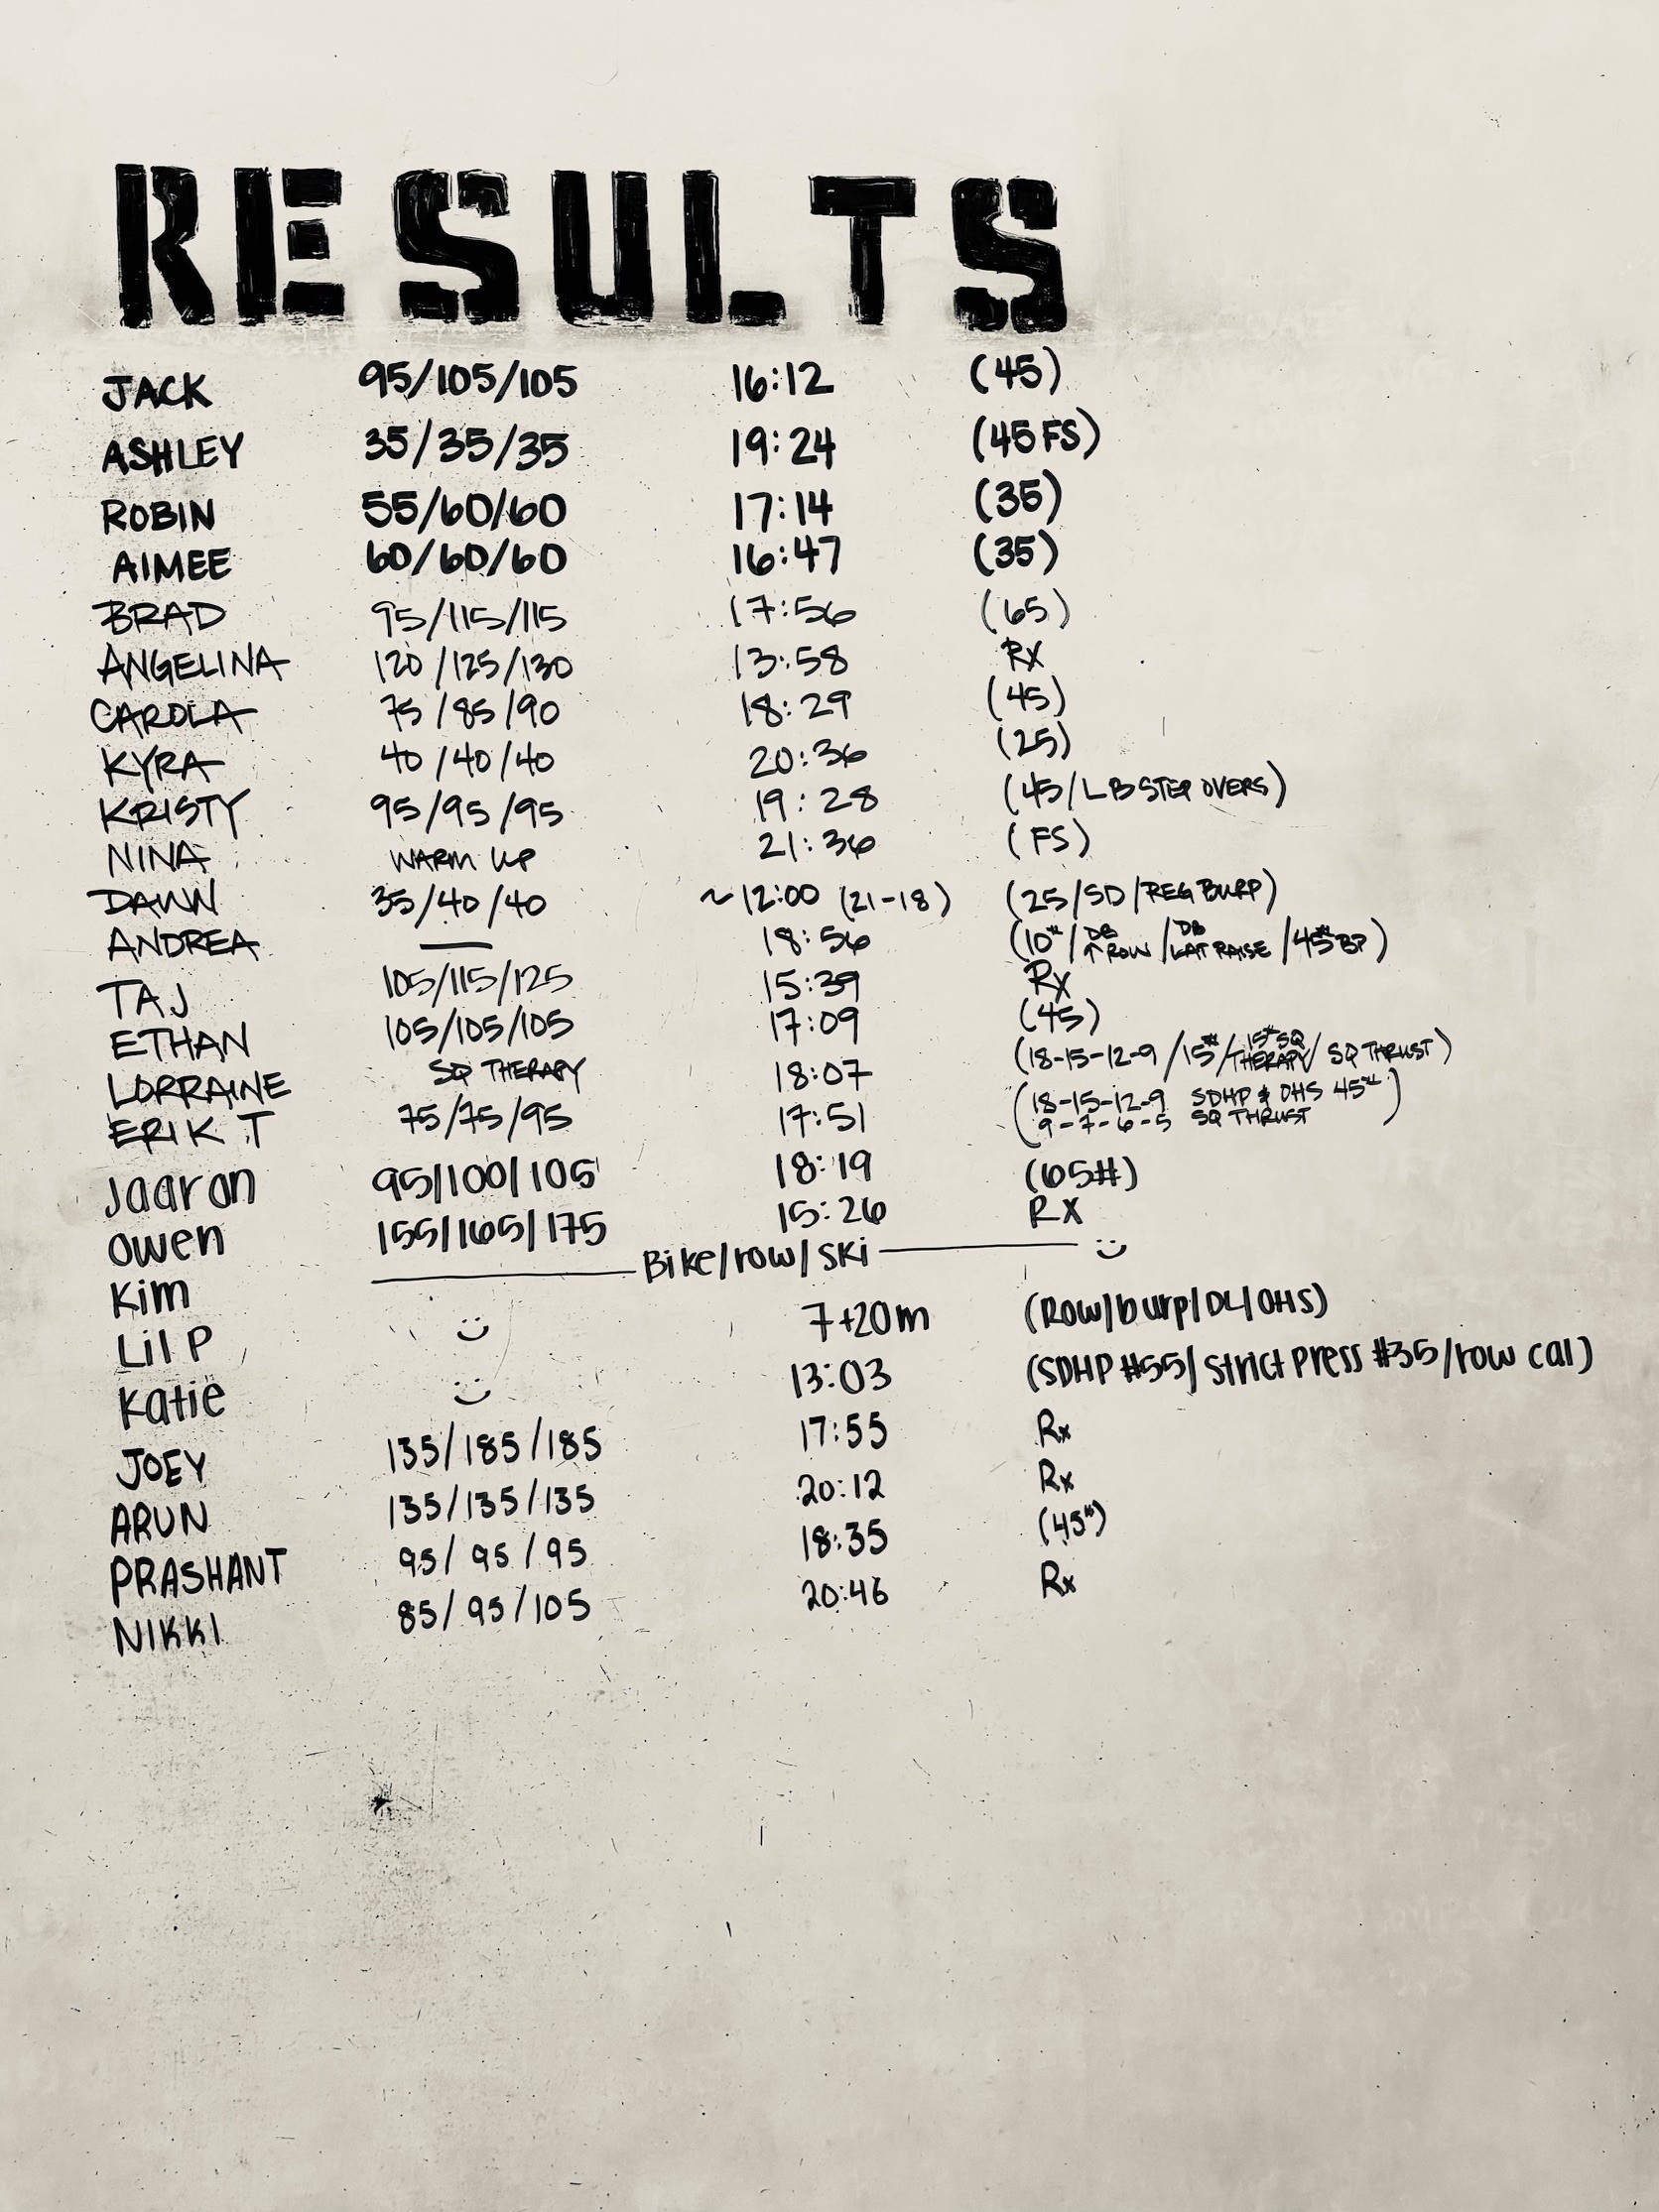 RESULTS
JACK 95/105/105 16:12 (45)
ASHLEY 35/35/35 19:24 (45 FS)
ROBIN 55/60/60 17:14 (35)
AIMEE 60/60/60 16:47 (35)
BRAD 95/115/115 17:56 (65)
ANGELINA 120/125/130 13:58 Rx
CAROLA 75/85/90 18:29 (45)
KYRA 40/40/40 20:36 (25)
KRISTY 95/95/95 19:28 (45/LB STEP OVERS)
NINA WARM UP 21:36 (FS)
DAWN 35/40/40 ~12:00 (21-18) (25/SD/REG BURP)
ANDREA — 18:56 (10#/DB ↑ ROW/DB LAT RAISE/45# BP)
TAJ 105/115/125 15:39 Rx
ETHAN 105/105/105 17:09 (45)
LORRAINE SQ THERAPY 18:07 (18-15-12-9/15#/15# SQ THERAPY/SQ THRUST)
ERIK T 75/75/95 17:51 (18-15-12-9 SDHP & OHS 45#
9-7-6-5 SQ THRUST)
Jaaron 95/100/105 18:19 (65#)
Owen 155/165/175 15:26 RX
Kim Bike/row/ski :)
Lil P :) 7+20m (Row/burp/DL/OHS)
Katie :) 13:03 (SDHP #55/strict press #35/row cal)
JOEY 135/185/185 17:55 Rx
ARUN 135/135/135 20:12 Rx
PRASHANT 95/95/95 18:35 (45#)
NIKKI 85/95/105 20:46 Rx